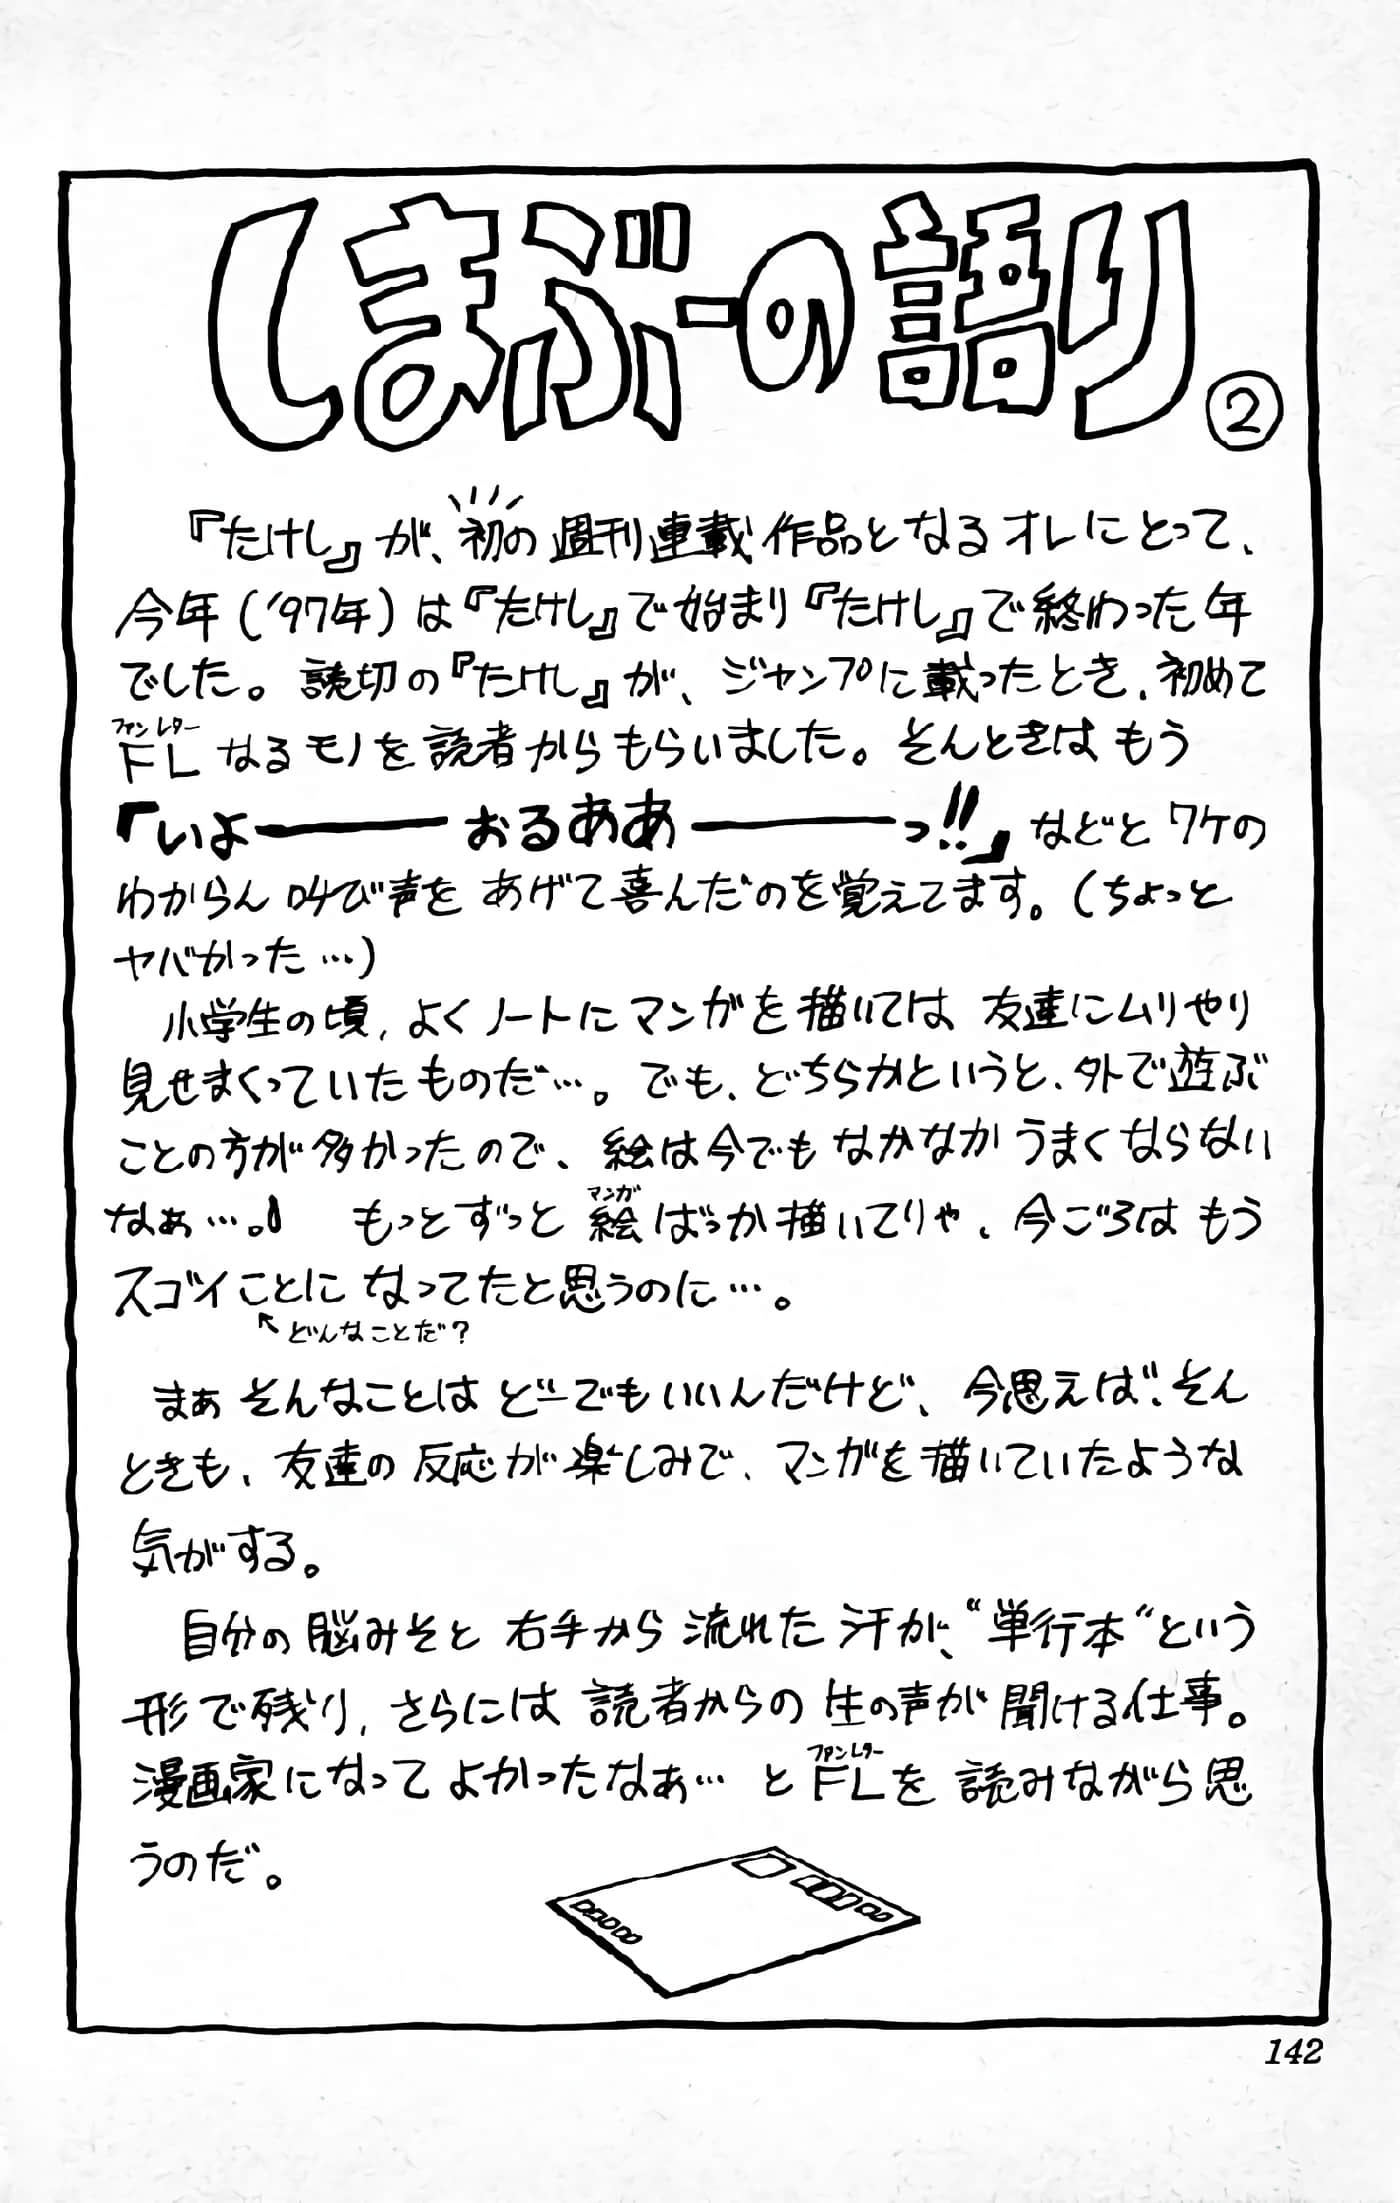 しまぶーの語り②
『たけし』が、初の週刊連載作品となるオレにとって、
今年('97年)は『たけし』で始まり『たけし』で終わった年
でした。読切の『たけし』が、ジャンプに載ったとき、初めて
ファンレター
FLなるモノを読者からもらいました。そんときはもう
「いよ━━━おるああ━━━っ!!」などとワケの
わからん叫び声をあげて喜んだのを覚えてます。(ちょっと
ヤバかった…)
小学生の頃、よくノートにマンガを描いては友達にムリやり
見せまくっていたものだ…。でも、どちらかというと、外で遊ぶ
ことの方が多かったので、絵は今でもなかなかうまくならない
マンガ
なぁ…。もっとずっと絵ばっか描いてりゃ、今ごろはもう
スゴイことになってたと思うのに…。
↖どんなことだ?
まぁそんなことはどーでもいいんだけど、今思えば、そん
ときも、友達の反応が楽しみで、マンガを描いていたような
気がする。
自分の脳みそと右手から流れた汗が、“単行本”という
形で残り、さらには読者からの生の声が聞ける仕事。
ファンレター
漫画家になってよかったなぁ…とFLを読みながら思
うのだ。
142